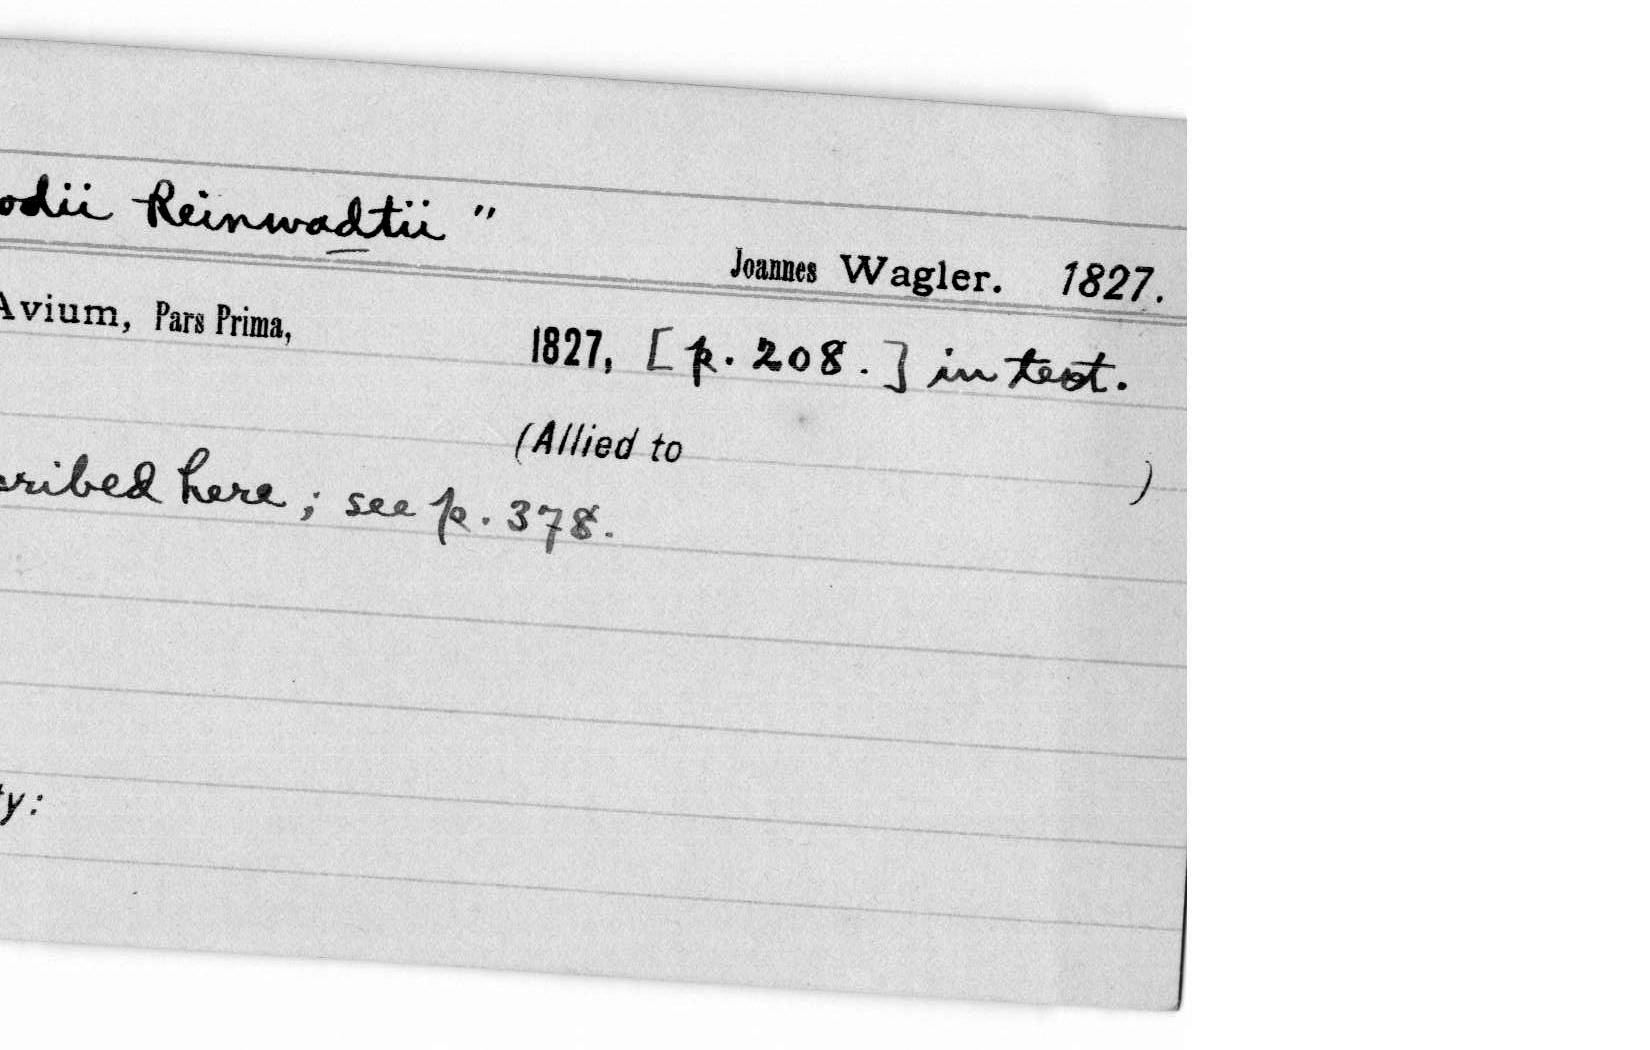 odii Reinwadtii "
Joannes Wagler. 1827.
Avium, Pars Prima, 1827, [p. 208.] in text.
(Allied to )
cribed here; see p. 378.
ty: